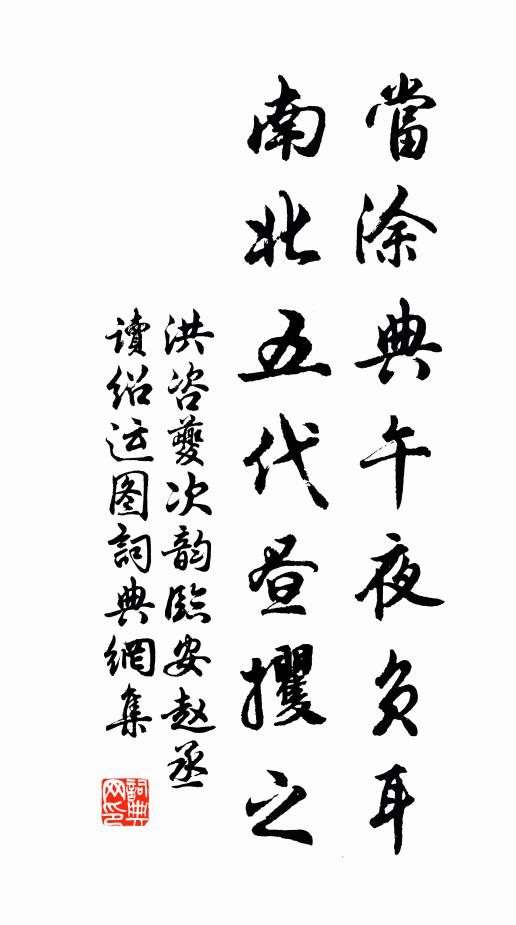 當涂典午夜負耳
南北五代晝攫之
洪咨夔次韵臨安赵丞
讀绍运图詞典網集
詞典
网印